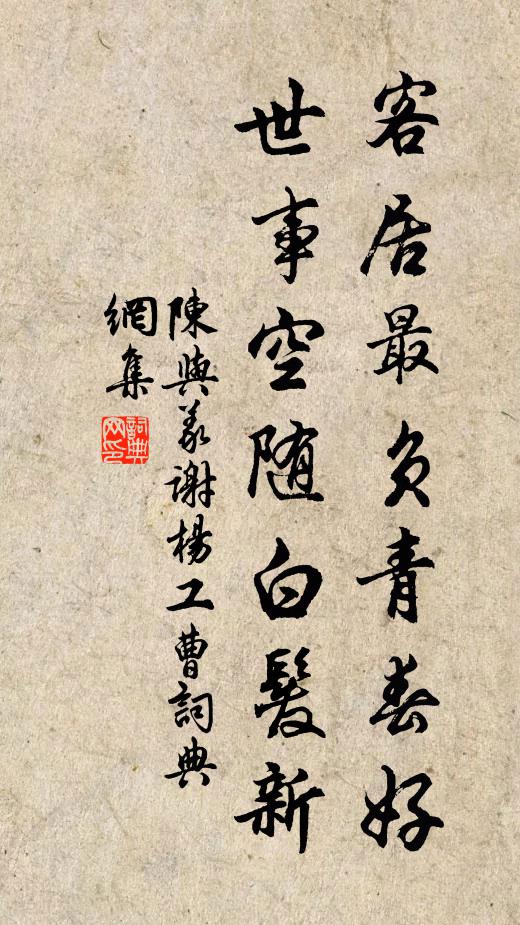 客居最负青春好
世事空随白髮新
陳與義謝楊工曹詞典
網集
詞典網印